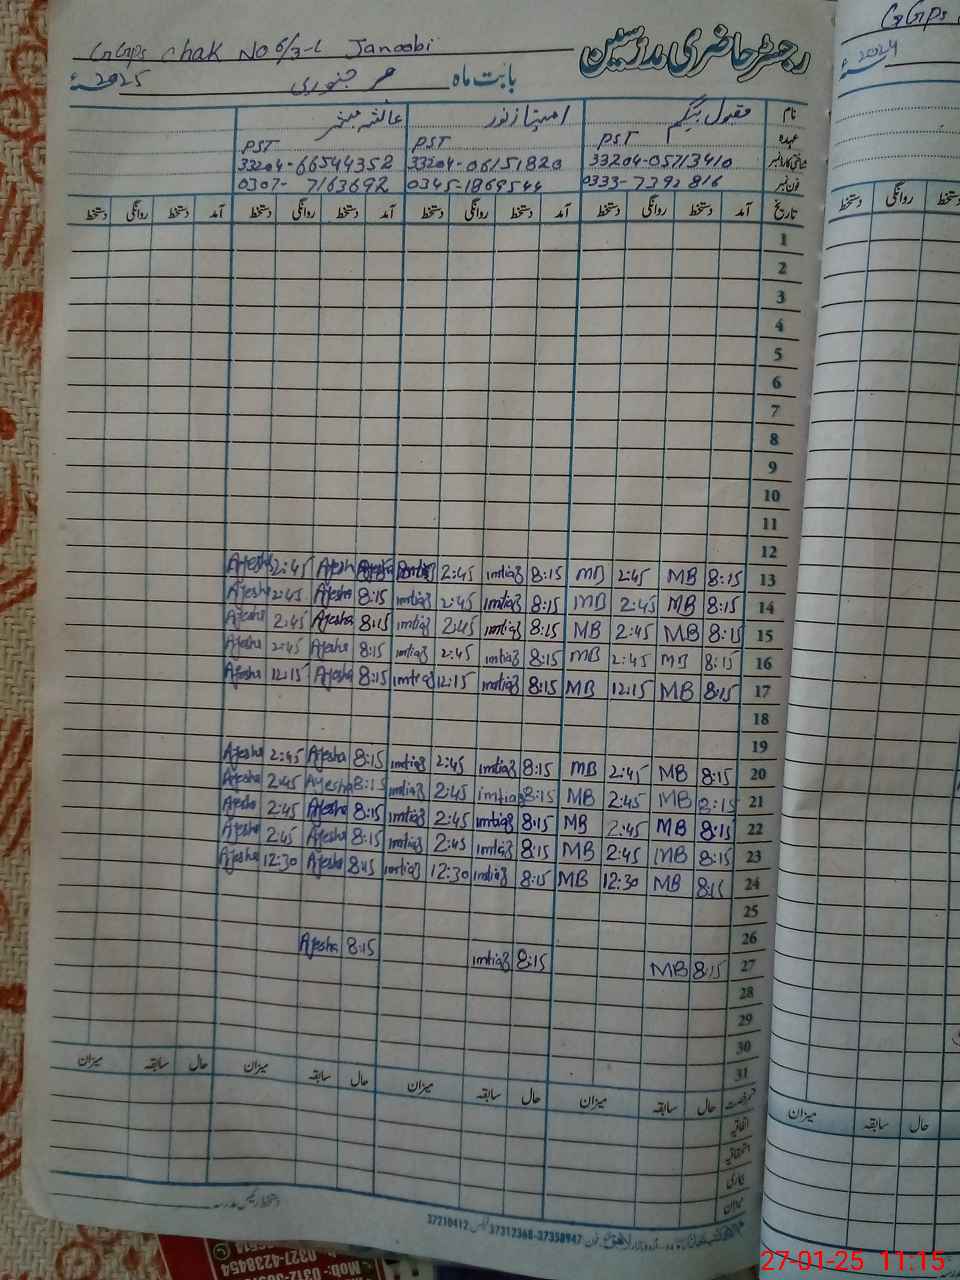 GGPS Chak No 6/3-L Janoobi
رجسٹر حاضری مدرسین
بابت ماہ جنوری 2025ء
نام مقبول بیگم امتیاز نور عائشہ
عہدہ PST PST PST
شناختی کارڈ نمبر 33204-05713410 33204-06151820 33204-66544352
فون نمبر 0333-7392816 0345-1869544 0307-7163692
تاریخ آمد دستخط روانگی دستخط آمد دستخط روانگی دستخط آمد دستخط روانگی دستخط آمد دستخط روانگی دستخط
1
2
3
4
5
6
7
8
9
10
11
12
13 8:15 MB 2:45 MB 8:15 imtiaz 2:45 Ayesha 2:45 Ayesha
14 8:15 MB 2:45 MB 8:15 imtiaz 2:45 imtiaz 8:15 Ayesha 2:45 Ayesha
15 8:15 MB 2:45 MB 8:15 imtiaz 2:45 imtiaz 8:15 Ayesha 2:45 Ayesha
16 8:15 MB 2:45 MB 8:15 imtiaz 2:45 imtiaz 8:15 Ayesha 2:45 Ayesha
17 8:15 MB 12:15 MB 8:15 imtiaz 12:15 imtiaz 8:15 Ayesha 12:15 Ayesha
18
19
20 8:15 MB 2:45 MB 8:15 imtiaz 2:45 imtiaz 8:15 Ayesha 2:45 Ayesha
21 8:15 MB 2:45 MB 8:15 imtiaz 2:45 imtiaz 8:15 Ayesha 2:45 Ayesha
22 8:15 MB 2:45 MB 8:15 imtiaz 2:45 imtiaz 8:15 Ayesha 2:45 Ayesha
23 8:15 MB 2:45 MB 8:15 imtiaz 2:45 imtiaz 8:15 Ayesha 2:45 Ayesha
24 8:15 MB 12:30 MB 8:15 imtiaz 12:30 imtiaz 8:15 Ayesha 12:30 Ayesha
25
26
27 8:15 MB 8:15 imtiaz 8:15 Ayesha
28
29
30
31
رخصت حال سابقہ میزان حال سابقہ میزان حال سابقہ میزان حال سابقہ میزان
اتفاقیہ
استحقاقیہ
بیماری
میزان
دستخط رئیس مدرسہ
37312368-37358947 37210412
GGPS
2024ء
دستخط روانگی دستخط
حال سابقہ میزان
0327-4238454
Mob: 0312-
27-01-25 11:15